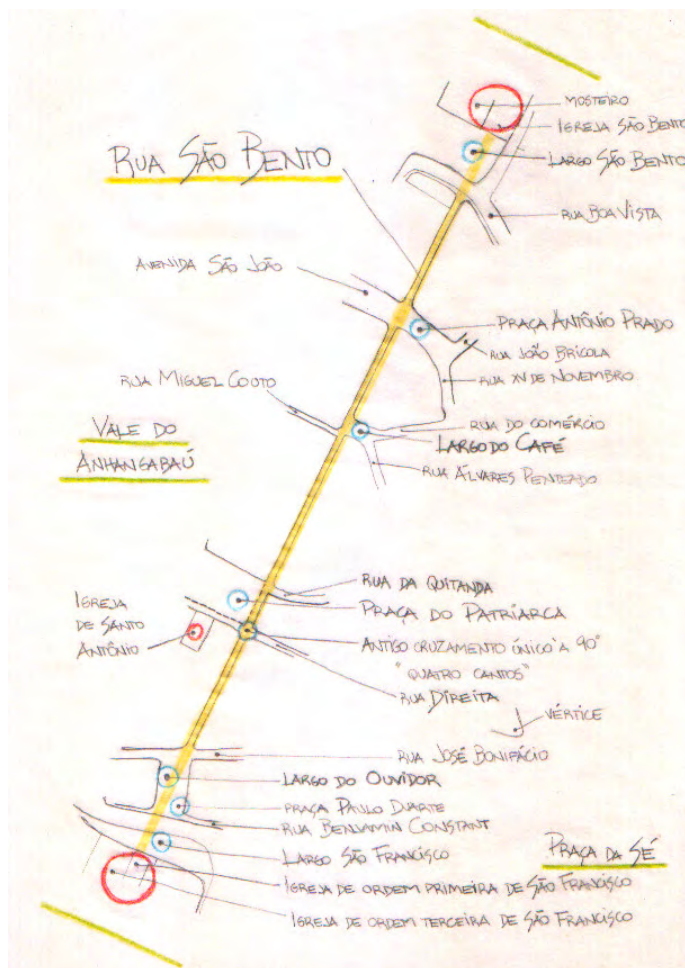 MOSTEIRO
IGREJA SÃO BENTO
LARGO SÃO BENTO
RUA SÃO BENTO
RUA BOA VISTA
AVENIDA SÃO JOÃO
PRAÇA ANTÔNIO PRADO
RUA JOÃO BRÍCOLA
RUA XV DE NOVEMBRO
RUA MIGUEL COUTO
RUA DO COMÉRCIO
LARGO DO CAFÉ
VALE DO
ANHANGABAÚ
RUA ÁLVARES PENTEADO
RUA DA QUITANDA
PRAÇA DO PATRIARCA
IGREJA
DE SANTO
ANTÔNIO
ANTIGO CRUZAMENTO ÚNICO À 90°
"QUATRO CANTOS"
RUA DIREITA
VÉRTICE
RUA JOSÉ BONIFÁCIO
LARGO DO OUVIDOR
PRAÇA PAULO DUARTE
RUA BENJAMIN CONSTANT
LARGO SÃO FRANCISCO
PRAÇA DA SÉ
IGREJA DE ORDEM PRIMEIRA DE SÃO FRANCISCO
IGREJA DE ORDEM TERCEIRA DE SÃO FRANCISCO